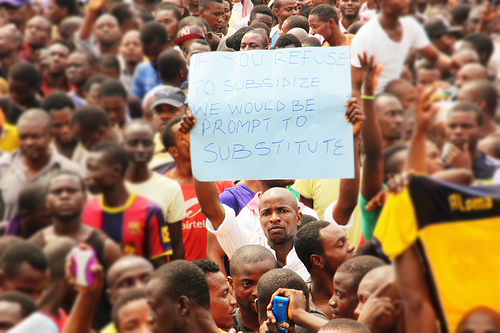 IF YOU REFUSE
TO SUBSIDIZE
WE WOULD BE
PROMPT TO
SUBSTITUTE
airtel